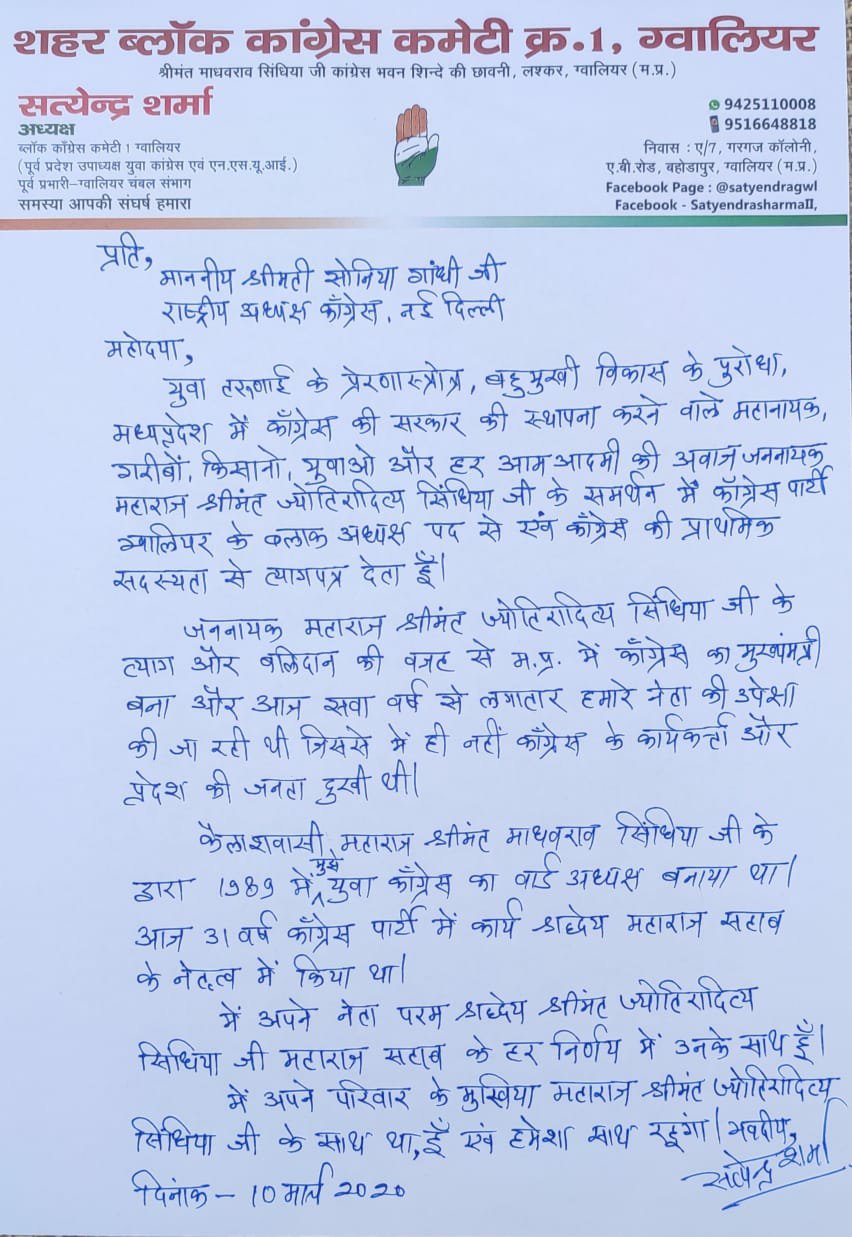 शहर ब्लॉक कांग्रेस कमेटी क्र.1, ग्वालियर
श्रीमंत माधवराव सिंधिया जी कांग्रेस भवन शिन्दे की छावनी, लश्कर, ग्वालियर (म.प्र.)
सत्येन्द्र शर्मा
अध्यक्ष
ब्लॉक काँग्रेस कमेटी 1 ग्वालियर
(पूर्व प्रदेश उपाध्यक्ष युवा कांग्रेस एवं एन.एस.यू.आई.)
पूर्व प्रभारी-ग्वालियर चंबल संभाग
समस्या आपकी संघर्ष हमारा
9425110008
9516648818
निवास : ए/7, गरगज कॉलोनी,
ए.बी.रोड, बहोडापुर, ग्वालियर (म.प्र.)
Facebook Page : @satyendragwl
Facebook - SatyendrasharmaII,
प्रति,
माननीय श्रीमती सोनिया गांधी जी
राष्ट्रीय अध्यक्ष काँग्रेस, नई दिल्ली
महोदया,
युवा तरुणाई के प्रेरणास्त्रोत्र, बहुमुखी विकास के पुरोधा,
मध्यप्रदेश में काँग्रेस की सरकार की स्थापना करने वाले महानायक,
गरीबों, किसानो, युवाओ और हर आम आदमी की अवाज जननायक
महाराज श्रीमंत ज्योतिरादित्य सिंधिया जी के समर्थन में काँग्रेस पार्टी
ग्वालियर के ब्लाक अध्यक्ष पद से एवं काँग्रेस की प्राथमिक
सदस्यता से त्यागपत्र देता हूँ।
जननायक महाराज श्रीमंत ज्योतिरादित्य सिंधिया जी के
त्याग और बलिदान की वजह से म.प्र. में काँग्रेस का मुख्यमंत्री
बना और आज सवा वर्ष से लगातार हमारे नेता की उपेक्षा
की जा रही थी जिससे में ही नहीं काँग्रेस के कार्यकर्त्ता और
प्रदेश की जनता दुखी थी।
कैलाशवासी महाराज श्रीमंत माधवराव सिंधिया जी के
द्वारा 1989 में मुझे युवा काँग्रेस का वार्ड अध्यक्ष बनाया था।
आज 31 वर्ष काँग्रेस पार्टी में कार्य श्रद्धेय महाराज सहाब
के नेतृत्व में किया था।
में अपने नेता परम श्रद्धेय श्रीमंत ज्योतिरादित्य
सिंधिया जी महाराज सहाब के हर निर्णय में उनके साथ हूँ।
में अपने परिवार के मुखिया महाराज श्रीमंत ज्योतिरादित्य
सिंधिया जी के साथ था, हूँ एवं हमेशा साथ रहूंगा। भवदीय,
सत्येन्द्र शर्मा
दिनांक - 10 मार्च 2020